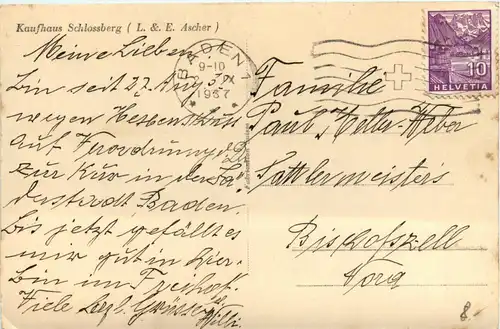 Kaufhaus Schlossberg ( L. & E. Ascher )
Meine Lieben
bin seit 27 Aug.
wegen
auf Verordnung
zur Kur in der Bä-
derstadt Baden.
Bis jetzt gefällt es
mir gut in hier.
bin im Freihof.
Viele herzl. Grüsse
Willi.
BADEN 1
9-10
1937
HELVETIA
10
Familie
Paul Keller-Weber
Sattlermeister's
Bischofszell
Torg
8